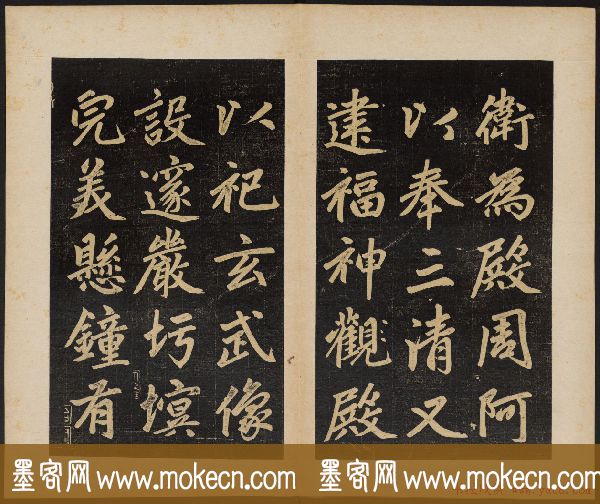 衛為殿周阿
以奉三清又
建福神觀殿
以祀玄武像
設邃嚴圬塓
完美懸鐘有
墨客网 www.mokecn.com 墨客网 www.mokecn.com